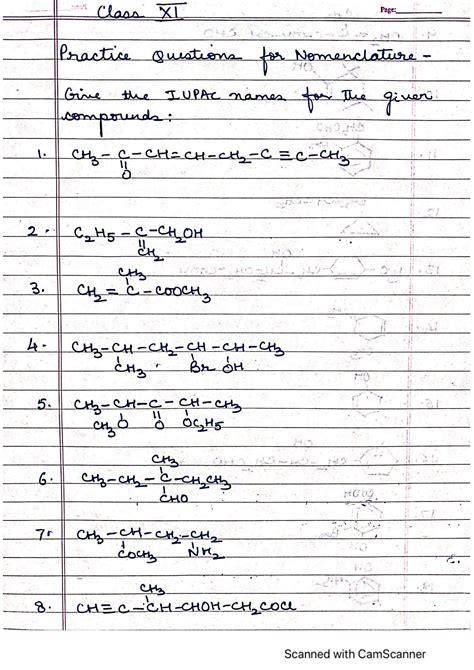 Class XI
Page:
Practice Questions for Nomenclature -
Give the IUPAC names for the given
compounds:
1. CH3 - C - CH = CH - CH2 - C ≡ C - CH3
||
O
2. C2H5 - C - CH2OH
||
CH2
CH3
3. CH2 = C - COOCH3
4. CH3 - CH - CH2 - CH - CH - CH3
CH3 Br OH
5. CH3 - CH - C - CH - CH3
CH3O O OC2H5
CH3
6. CH3 - CH2 - C - CH2CH3
CHO
7. CH3 - CH - CH2 - CH2
COCH3 NH2
CH3
8. CH ≡ C - CH - CHOH - CH2COCl
Scanned with CamScanner